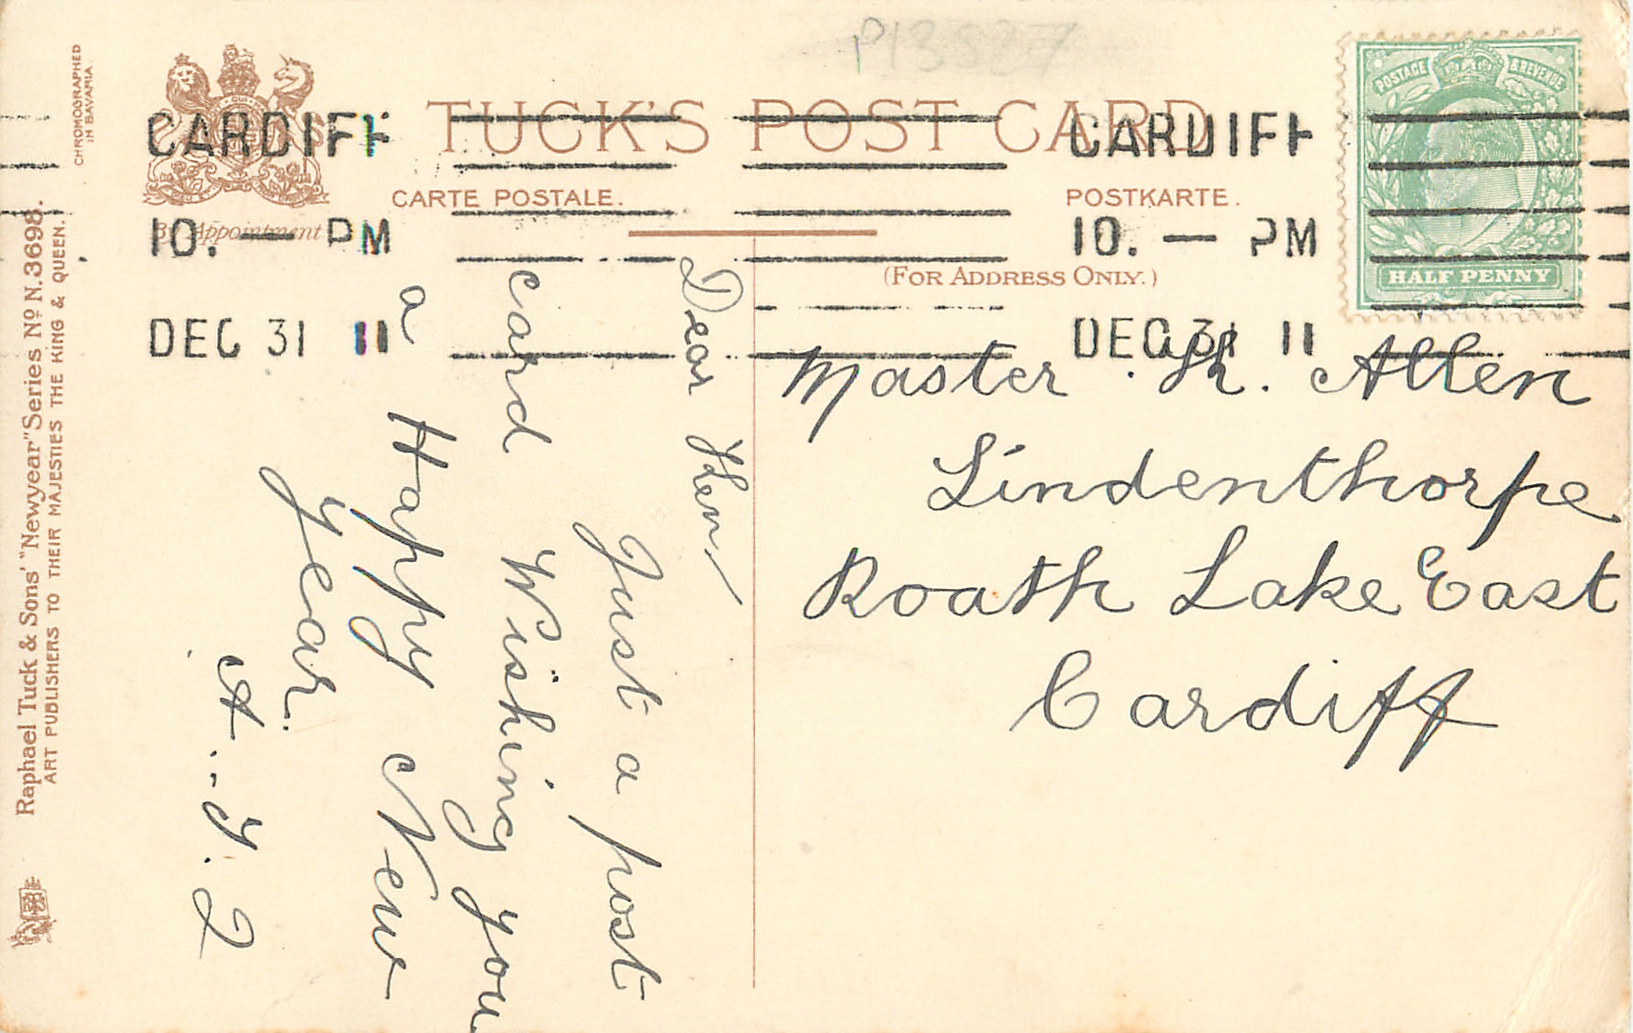 P13587
TUCK'S POST CARD
CARTE POSTALE.
POSTKARTE.
By Appointment
(FOR ADDRESS ONLY.)
CARDIFF
10. — PM
DEC 31 11
CARDIFF
10. — PM
DEC 31 11
POSTAGE & REVENUE
HALF PENNY
CHROMOGRAPHED
IN BAVARIA
Raphael Tuck & Sons' "Newyear" Series No. N.3698.
ART PUBLISHERS TO THEIR MAJESTIES THE KING & QUEEN.
Dear Ken,
Just a post
card Wishing you
a Happy New
Year.
A. J. 2
Master K. Allen
Lindenthorpe
Roath Lake East
Cardiff